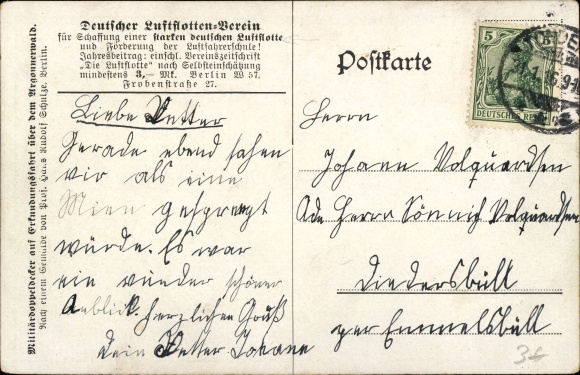 Militärdoppeldecker auf Erkundungsfahrt über dem Argonnerwald.
Nach einem Gemälde von Prof. Hans Rudolf Schulze, Berlin.
Deutscher Luftflotten-Verein
für Schaffung einer starken deutschen Luftflotte
und Förderung der Luftfahrerschule!
Jahresbeitrag: einschl. Vereinszeitschrift
„Die Luftflotte" nach Selbsteinschätzung
mindestens 3,— Mk. Berlin W 57.
Frobenstraße 27.
Liebe Vetter
Gerade ebend sahen
wir als eine
Mien gesprengt
würde. Es war
ein wunder schöner
Anblick. Herzlichen Gruß
Dein Vetter Johann
Postkarte
5
DEUTSCHES REICH
Herrn
Johann Volquardsen
Ade Herrn Sönnich Volquardsen
Diedersbüll
per Emmelsbüll